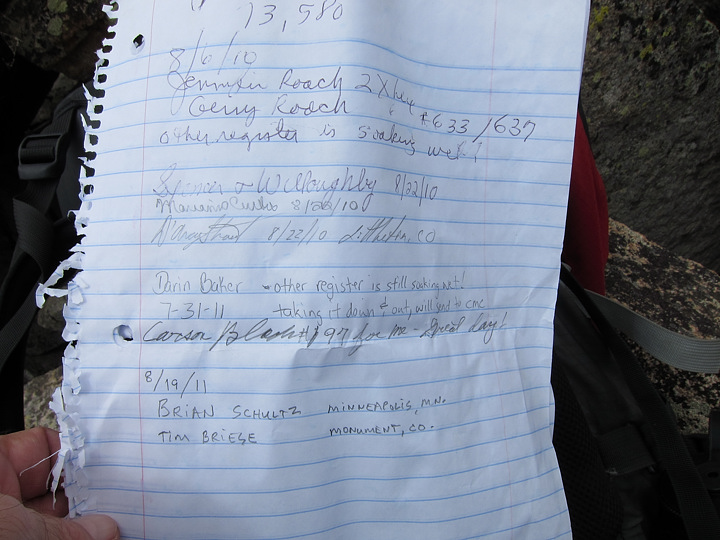 13,580
8/6/10
Jennifer Roach 2X here
Gerry Roach #633/637
other register is soaking wet!
Spencer & Willoughby 8/22/10
8/22/10
8/22/10 Littleton, CO
Darin Baker - other register is still soaking wet!
7-31-11 taking it down & out, will send to cmc
Carson Black #197 for me - Great day!
8/19/11
BRIAN SCHULTZ MINNEAPOLIS, MN.
TIM BRIESE MONUMENT, CO.